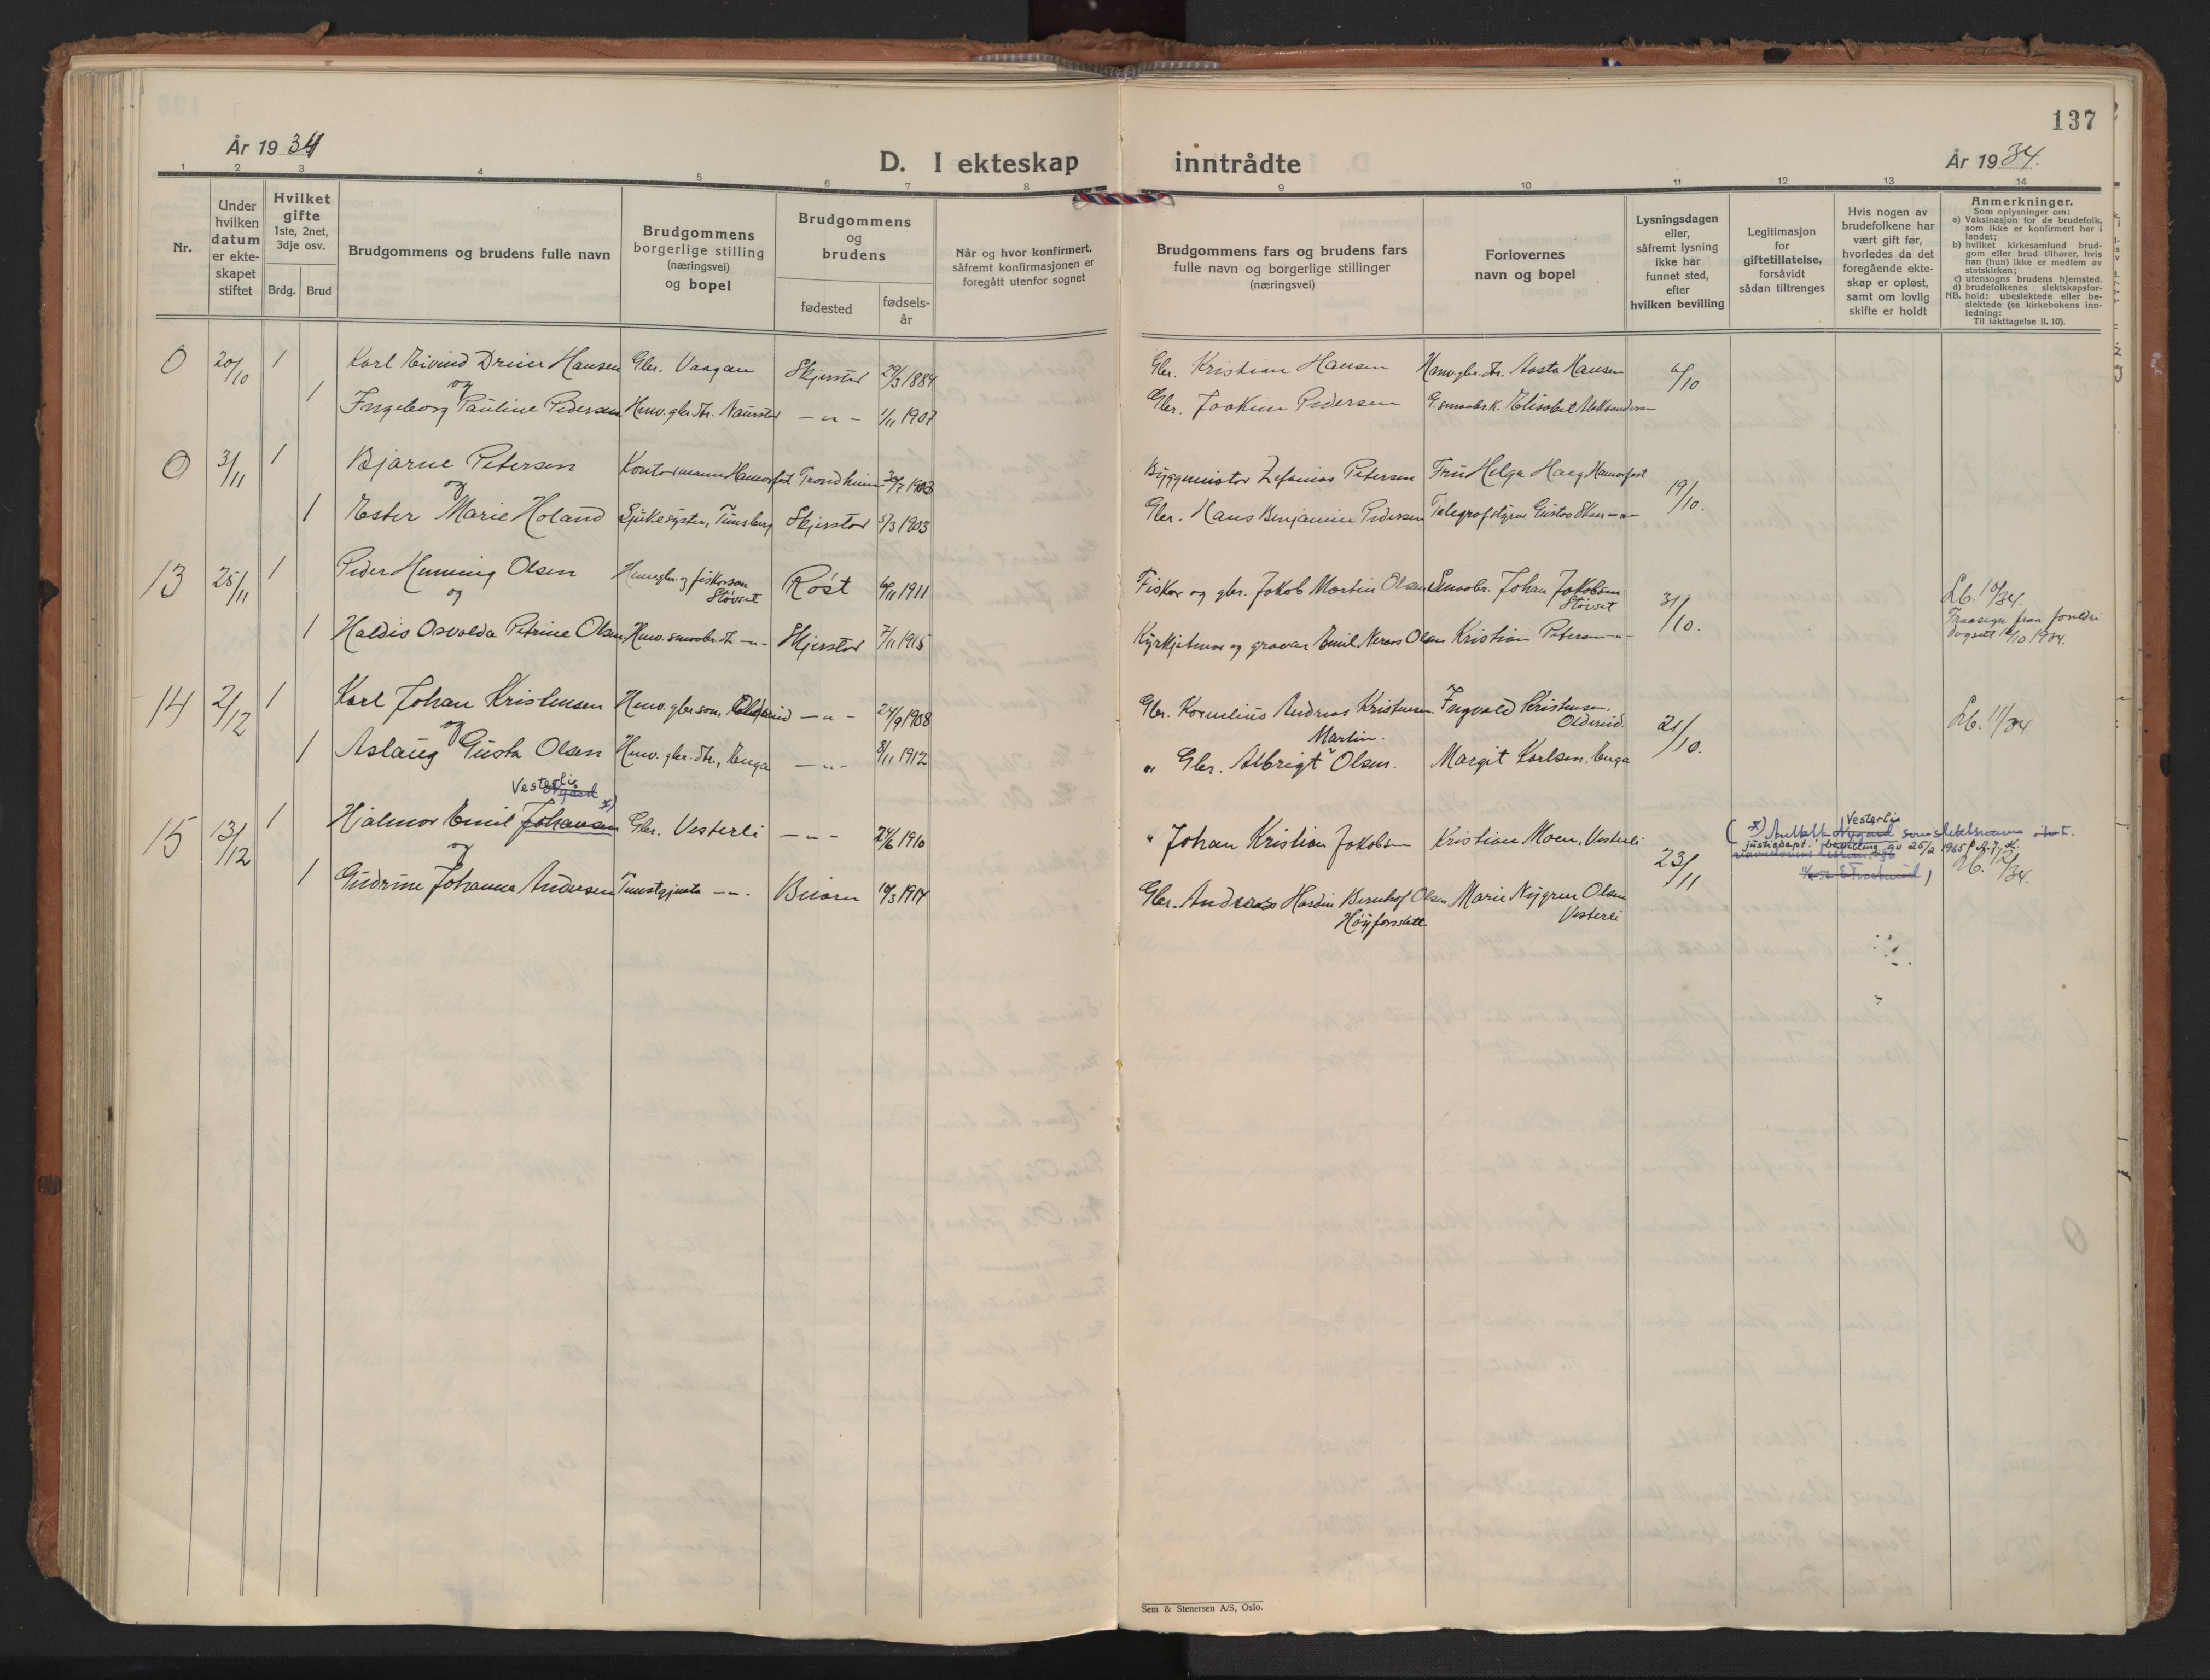 137
År 1934
D. I ekteskap inntrådte
År 1934.
1 2 3 4 5 6 7 8 9 10 11 12 13 14
Nr.
Under hvilken datum er ekte- skapet stiftet
Hvilket gifte 1ste, 2net, 3dje osv.
Brdg. Brud
Brudgommens og brudens fulle navn
Brudgommens borgerlige stilling (næringsvei) og bopel
Brudgommens og brudens
fødested
fødsels- år
Når og hvor konfirmert, såfremt konfirmasjonen er foregått utenfor sognet
Brudgommens fars og brudens fars fulle navn og borgerlige stillinger (næringsvei)
Forlovernes navn og bopel
Lysningsdagen eller, såfremt lysning ikke har funnet sted, efter hvilken bevilling
Legitimasjon for giftetillatelse, forsåvidt sådan tiltrenges
Hvis nogen av brudefolkene har vært gift før, hvorledes da det foregående ekte- skap er opløst, samt om lovlig skifte er holdt
Anmerkninger.
Som oplysninger om:
a) Vaksinasjon for de brudefolk, som ikke er konfirmert her i landet;
b) hvilket kirkesamfund brud- gom eller brud tilhører, hvis han (hun) ikke er medlem av statskirken;
c) utensogns brudens hjemsted.
d) brudefolkenes slektskapsfor-
NB. hold: ubeslektede eller be- slektede (se kirkebokens inn- ledning:
Til iakttagelse II. 10).
0 20/10 1 Karl Eivind Dreier Hansen Gbr. Vaagan Skjerstad 29/3 1884 Gbr. Kristian Hansen Heimv. gbr. dtr. Aasta Hansen 6/10
og
1 Ingeborg Pauline Pedersen Heimv. gbr. dtr. Naurstad —"— 1/11 1907 Gbr. Joakim Pedersen Elisabet Aleksandersen
0 3/11 1 Bjarne Petersen Kontormann Hamerfest Trondheim 30/7 1903 Byggmeister Zefanias Petersen Fru Helga Haeg Hamerfest 19/10.
og
1 Ester Marie Holand Sjukesyster, Tunsberg Skjerstad 5/3 1903 Gbr. Hans Benjamin Pedersen Telegrafstyrar Gustav Skaar —"—
13 25/11 1 Peder Henning Olsen Heimv. gbr. og fiskarson Støvset Røst 1911 Fiskar og gbr. Jakob Martin Olsen Smaabr. Johan Jakobsen Støvset 31/10.
og
1 Haldis Osvalda Petrine Olsen Heimv. smaabr. dtr. —"— Skjerstad 7/11 1915 Kyrkjetenar og gravar Emil Olsen Kristian Petersen —"—
Lb. 10/34.
fraa foreldri
10 1934.
14 2/12 1 Karl Johan Kristensen Heimv. gbr. son, Oldereid —"— 24/9 1908 Gbr. Kornelius Andreas Kristensen. Ingvald Kristensen, Oldereid. 21/10. Lb. 11/34
og
1 Aslaug Gusta Olsen Heimv. gbr. dtr., Venga —"— 8/11 1912 " Gbr. Albrigt Martin Olsen. Margit Karlsen, Venga
Vesterlie
15 13/12 1 Hjalmar Emil Johansen *) Gbr. Vesterli —"— 24/6 1910 " Johan Kristian Jakobsen Kristian Moen, Vesterli 23/11
og
1 Gudrun Johanna Andersen Tenestgjenta —"—. Beiarn 10/3 1914 Gbr. Andreas Hardin Bernhof Olsen Høyforsslett Marie Nygren Olsen Vesterli
(*) Vesterlie som slektsnamn
justisdept. bevilling av 25/2 1965
Lb. 12/34.
Sem & Stenersen A/S, Oslo.